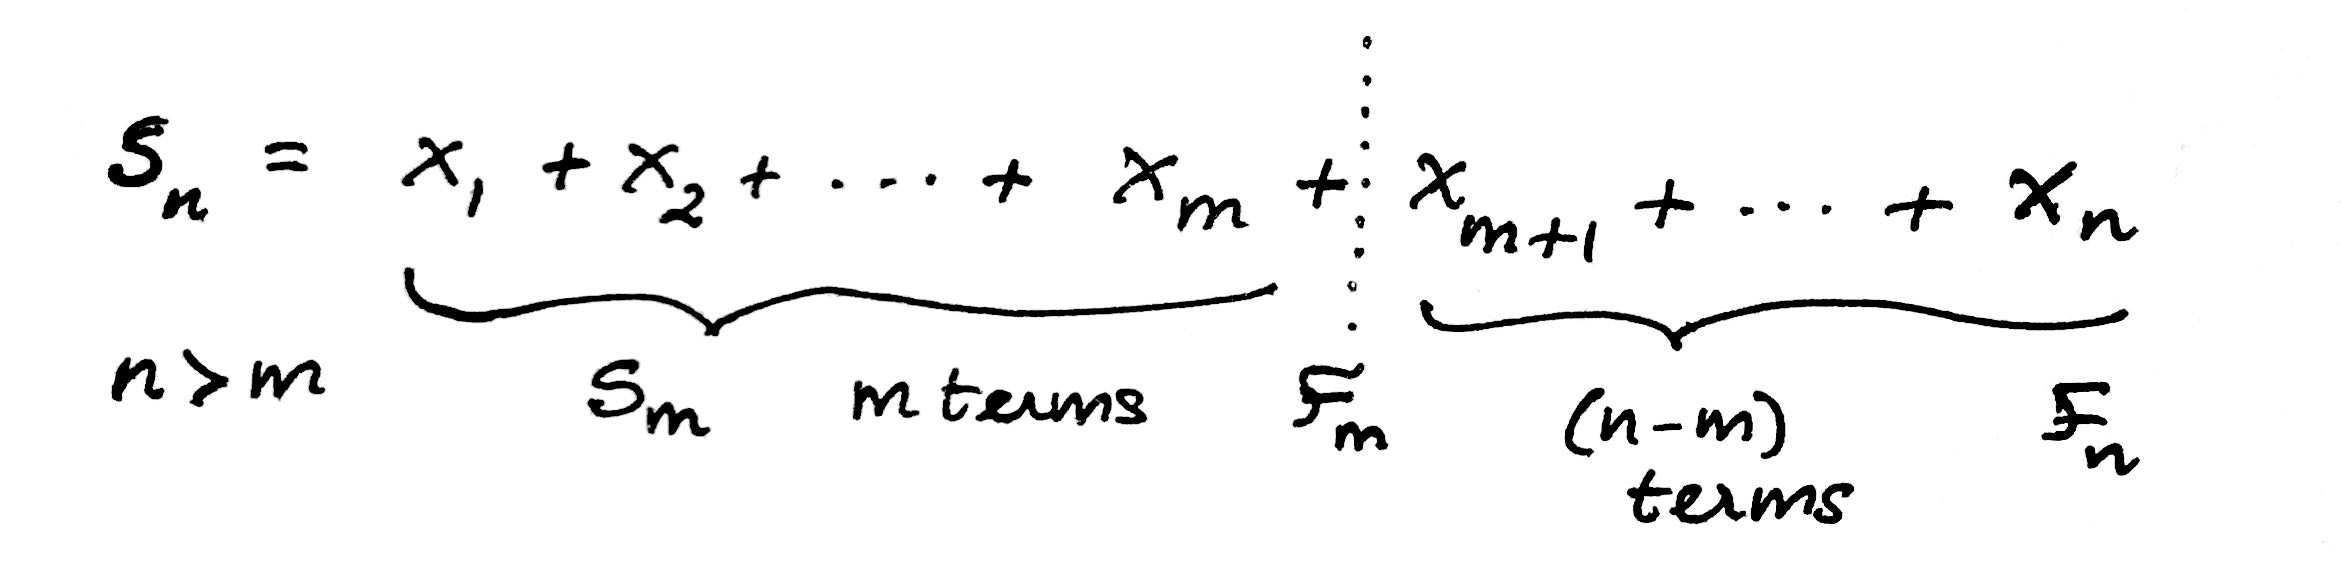 Sₙ = x₁ + x₂ + ... + xₘ + xₘ₊₁ + ... + xₙ
n > m Sₘ m terms Fₘ (n-m) Fₙ
terms